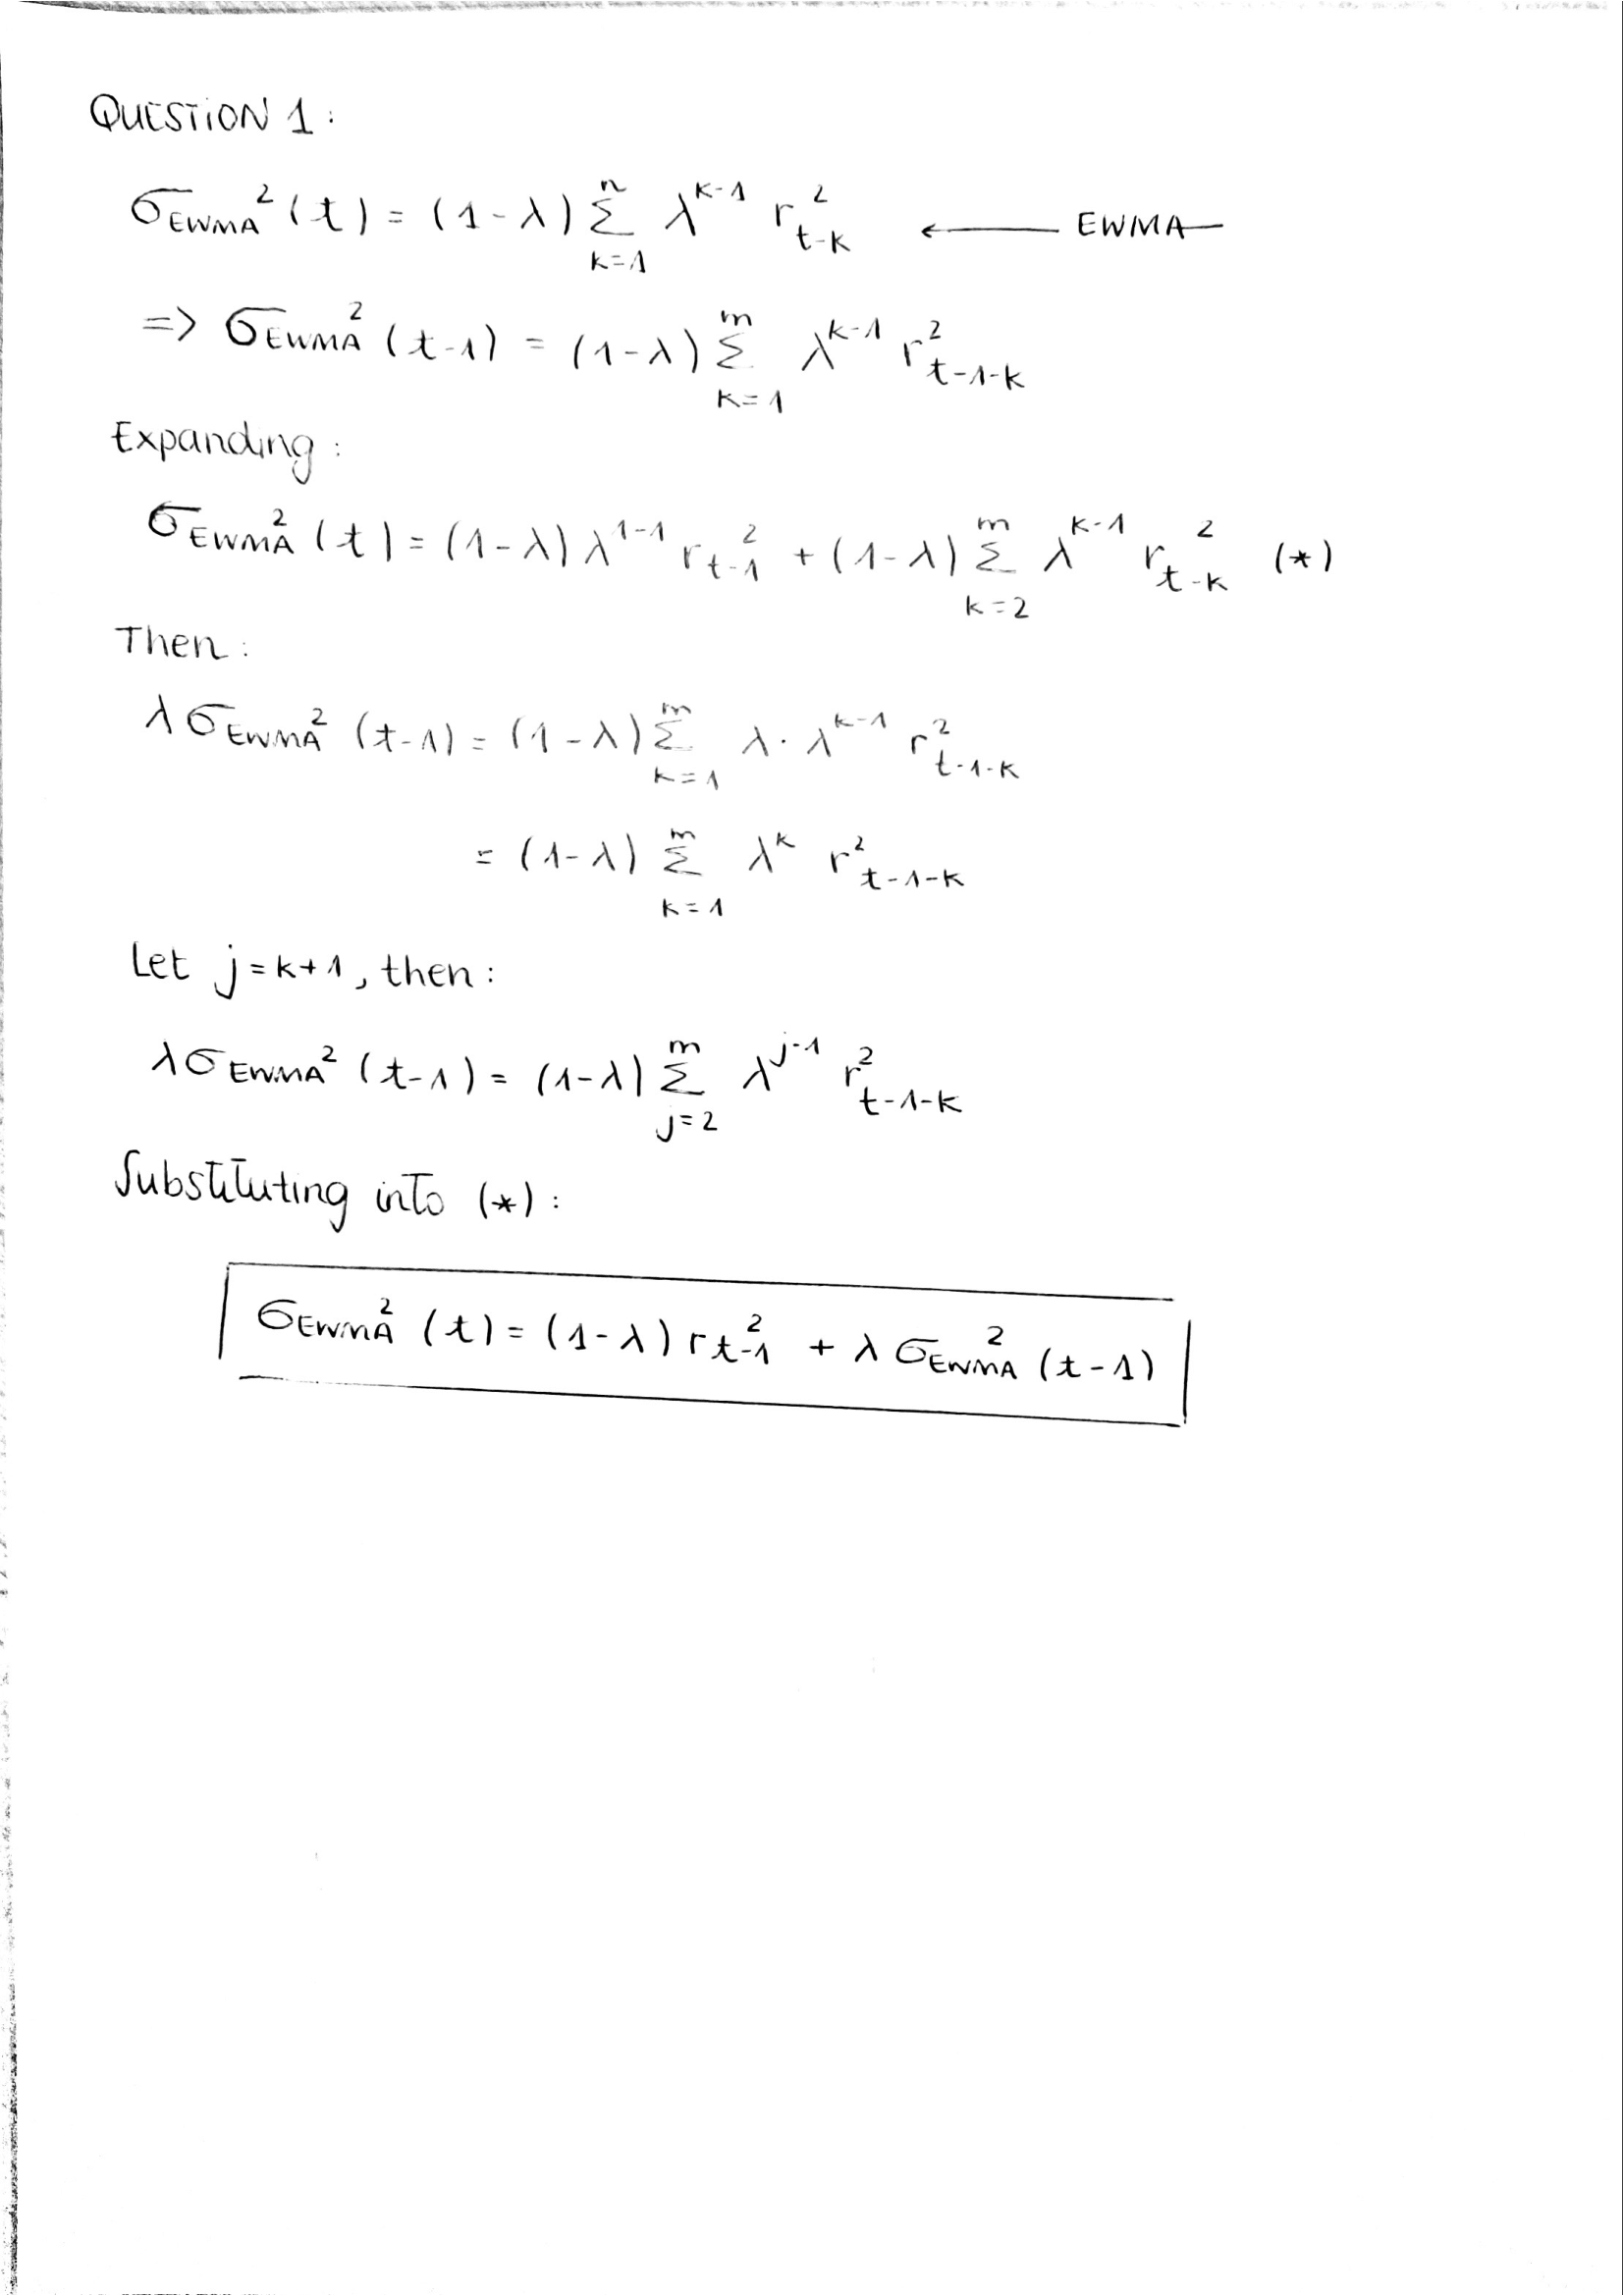 QUESTION 1:
σ_EWMA² (t) = (1-λ) Σ_{k=1}^{n} λ^{k-1} r²_{t-k} ← EWMA
=> σ_EWMA² (t-1) = (1-λ) Σ_{k=1}^{m} λ^{k-1} r²_{t-1-k}
Expanding:
σ_EWMA² (t) = (1-λ) λ^{1-1} r_{t-1}² + (1-λ) Σ_{k=2}^{m} λ^{k-1} r_{t-k}² (*)
Then:
λσ_EWMA² (t-1) = (1-λ) Σ_{k=1}^{m} λ · λ^{k-1} r²_{t-1-k}
= (1-λ) Σ_{k=1}^{m} λ^k r²_{t-1-k}
Let j=k+1, then:
λσ_EWMA² (t-1) = (1-λ) Σ_{j=2}^{m} λ^{j-1} r²_{t-1-k}
Substituting into (*):
σ_EWMA² (t) = (1-λ) r_{t-1}² + λ σ_EWMA² (t-1)